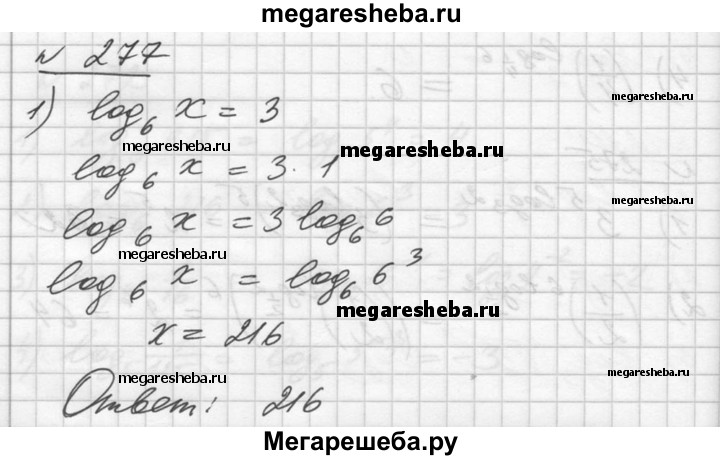 megaresheba.ru
№ 277
1) log₆ x = 3
megaresheba.ru
megaresheba.ru
megaresheba.ru
log₆ x = 3 · 1
megaresheba.ru
log₆ x = 3 log₆ 6
megaresheba.ru
log₆ x = log₆ 6³
megaresheba.ru
x = 216
megaresheba.ru
megaresheba.ru
Ответ: 216
Мегарешеба.ру